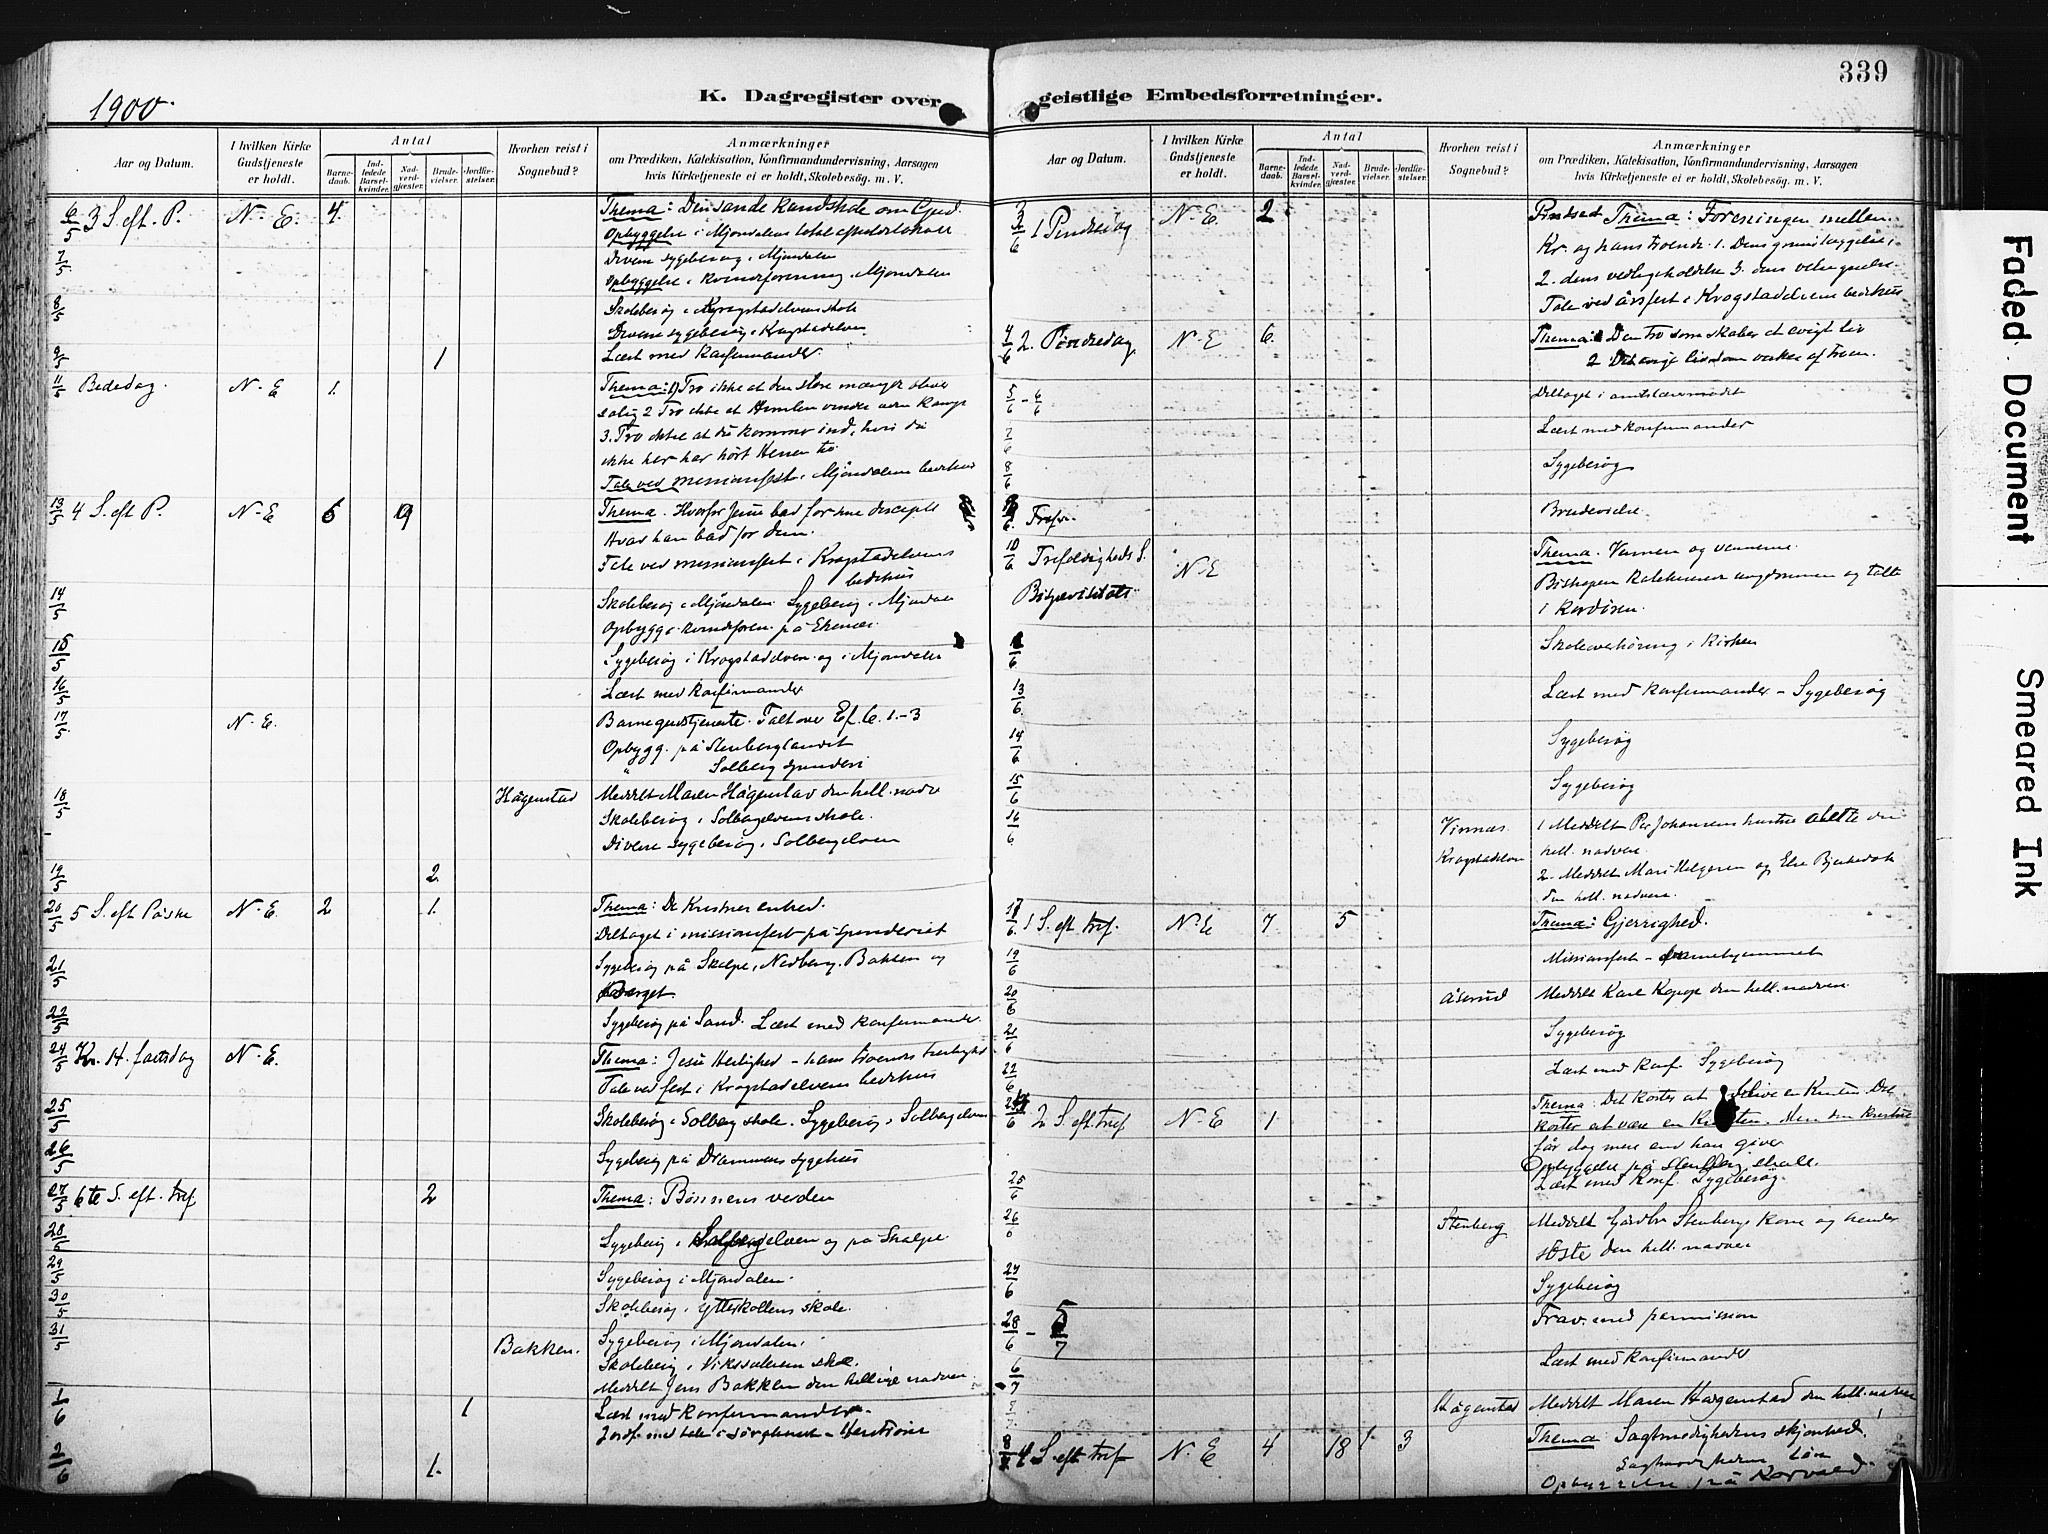 1900.
K. Dagregister over geistlige Embedsforretninger.
339
Aar og Datum.
I hvilken Kirke Gudstjeneste er holdt.
Antal
Barnedaab.
Indledede Barselkvinder.
Nadverdgjæster.
Brudevielser.
Jordfæstelser.
Hvorhen reist i Sognebud?
Anmærkninger
om Prædiken, Katekisation, Konfirmandundervisning, Aarsagen
hvis Kirketjeneste ei er holdt, Skolebesøg. m. V.
6/5 3 S. eft. P. N. E. 4. Thema: Den sande kundskab om Gud.
Opbyggelse i Mjøndalens
7/5 Divese sygebesøg i Mjøndalen
Opbyggelse i kvindeforening i Mjøndalen
8/5 Skolebesøg i Krogstadelvens skole
Diverse sygebesøg i Krogstadelven
9/5 1 Læst med konfirmander.
11/5 Bededag N. E 1. Thema: 1) Tro ikke at den store mængde bliver
salig 2 Tro ikke at Himlen vindes uden kamp
3. Tro ikke at du kommer ind, hvis du
ikke her har hørt Herren til
Tale ved missionsfest i Mjøndalens bedehus
13/5 4 S. eft P. N. E 6 9 Thema. Hvorfor Jesus bad for sine disciple
Hvad han bad for dem.
Tale ved missionsfest i Krogstadelvens
bedehus
14/5 Skolebesøg i Mjøndalen Sygebesøg i Mjøndalen
Opbygg i kvindeforen. på Ekenæs.
15/5 Sygebesøg i Krogstadelven og i Mjøndalen
16/5 Læst med konfirmander
17/5 N. E. Barnegudstjeneste. Talt over Ef. 6. 1-3
Opbygg. på Stenberglandet
" Solberg spinderi
18/5 Hågenstad Meddelt Maren Hågenstad den hell. nadv.
Skolebesøg i Solbergelvens skole.
Diverse sygebesøg i Solbergelven
19/5 2.
20/5 5 S. eft Påske N. E. 2 1. Thema: De Kristnes enhed.
Deltaget i missionsfest på spinderiet
21/5 Sygebesøg på Skalpe, Nedberg, Bakken og
Berget.
22/5 Sygebesøg på Sand. Læst med konfirmander.
24/5 Kr. H. fartsdag N. E. Thema: Jesu Herlighed - hans troendes herlighed
Tale ved fest i Krogstadelvens bedehus
25/5 Skolebesøg i Solberg skole. Sygebesøg i Solbergelven
26/5 Sygebesøg på Drammens sygehus
27/5 6te S. eft. tref 2 Thema: Bønnens verden
28/5 Sygebesøg i Solbergelven og på Skalpe.
29/5 Sygebesøg i Mjøndalen.
30/5 Skolebesøg i Ytterkollens skole.
31/5 Bakken. Sygebesøg i Mjøndalen.
Skolebesøg i skole.
Meddelt Jens Bakken den hellige nadver.
1/6 1 Læst med konfirmander.
Jordf. med tale i sørgehuset -
2/6 1.
3/6 1 Pindsedag N. E. 2 Pindsed Thema: Foreningen mellem
Kr. og hans troende. 1. Dens grundlæggelse,
2. dens vedligeholdelse 3. dens velsignelse.
Tale ved årsfest i Krogstadelvens bedehus
4/6 2. Pindsedag N. E 6. Thema: 1 Den tro som skaber et evigt liv
2 Det evige liv som virkes af troen.
5/6 - 6/6 Deltaget i amtslærermødet
7/6 Læst med konfirmander
8/6 Sygebesøg
9/6 Brudevielse
10/6 Trefoldigheds S. N. E Thema. Vennen og vennerne.
Bispevisitats Bispen katekiserer ungdommen og talte
i kordøren.
/6 Skoleoverhøring i kirken
13/6 Læst med konfirmander - Sygebesøg
14/6 Sygebesøg
15/6 Sygebesøg
16/6 Vinnæs 1 Meddelt Per Johansens hustru den
Krogstadelven hell. nadvere.
2. Meddelt Mari Helgesen og Else
den hell. nadvere.
17/6 1 S. eft. tref. N. E 7 5 Thema: Gjerrighed.
19/6 Missionsfest -
20/6 Åserud Meddelt Karl Koppe den hell. nadver.
21/6 Sygebesøg
22/6 Læst med konf. Sygebesøg
24/6 2 S. eft. tref N. E 1. Thema. Det koster at blive en Kristen Det
koster at være en Kristen. Men den kristne
får dog mere end han giver
Opbyggelse på Stenberg skole.
25/6 Læst med konf. Sygebesøg.
26/6 Stenberg Meddelt Gårdbr Stenbergs kone og hendes
søster den hell. nadver
27/6 Sygebesøg
28/6 - 5/7 Frav. med permission
6/7 Læst med konfirmander
/7 Hågenstad Meddelt Maren Hågenstad den hell. nadver
8/7 4 S. eft tref N. E 4 18 1 3 Thema: Sagtmodighedens skjønhed,
Sagtmodighedens løn
Opbyggelse på Korvald.
Faded Document
Smeared Ink